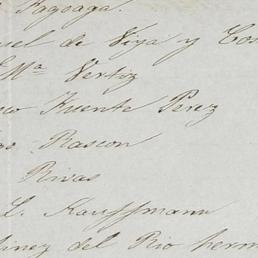 Fagoaga.
uel de Viya y Cos
Mª Vertiz
co Fuente Perez
os Rascon
Rivas
L. Kauffmann
inez del Rio herm